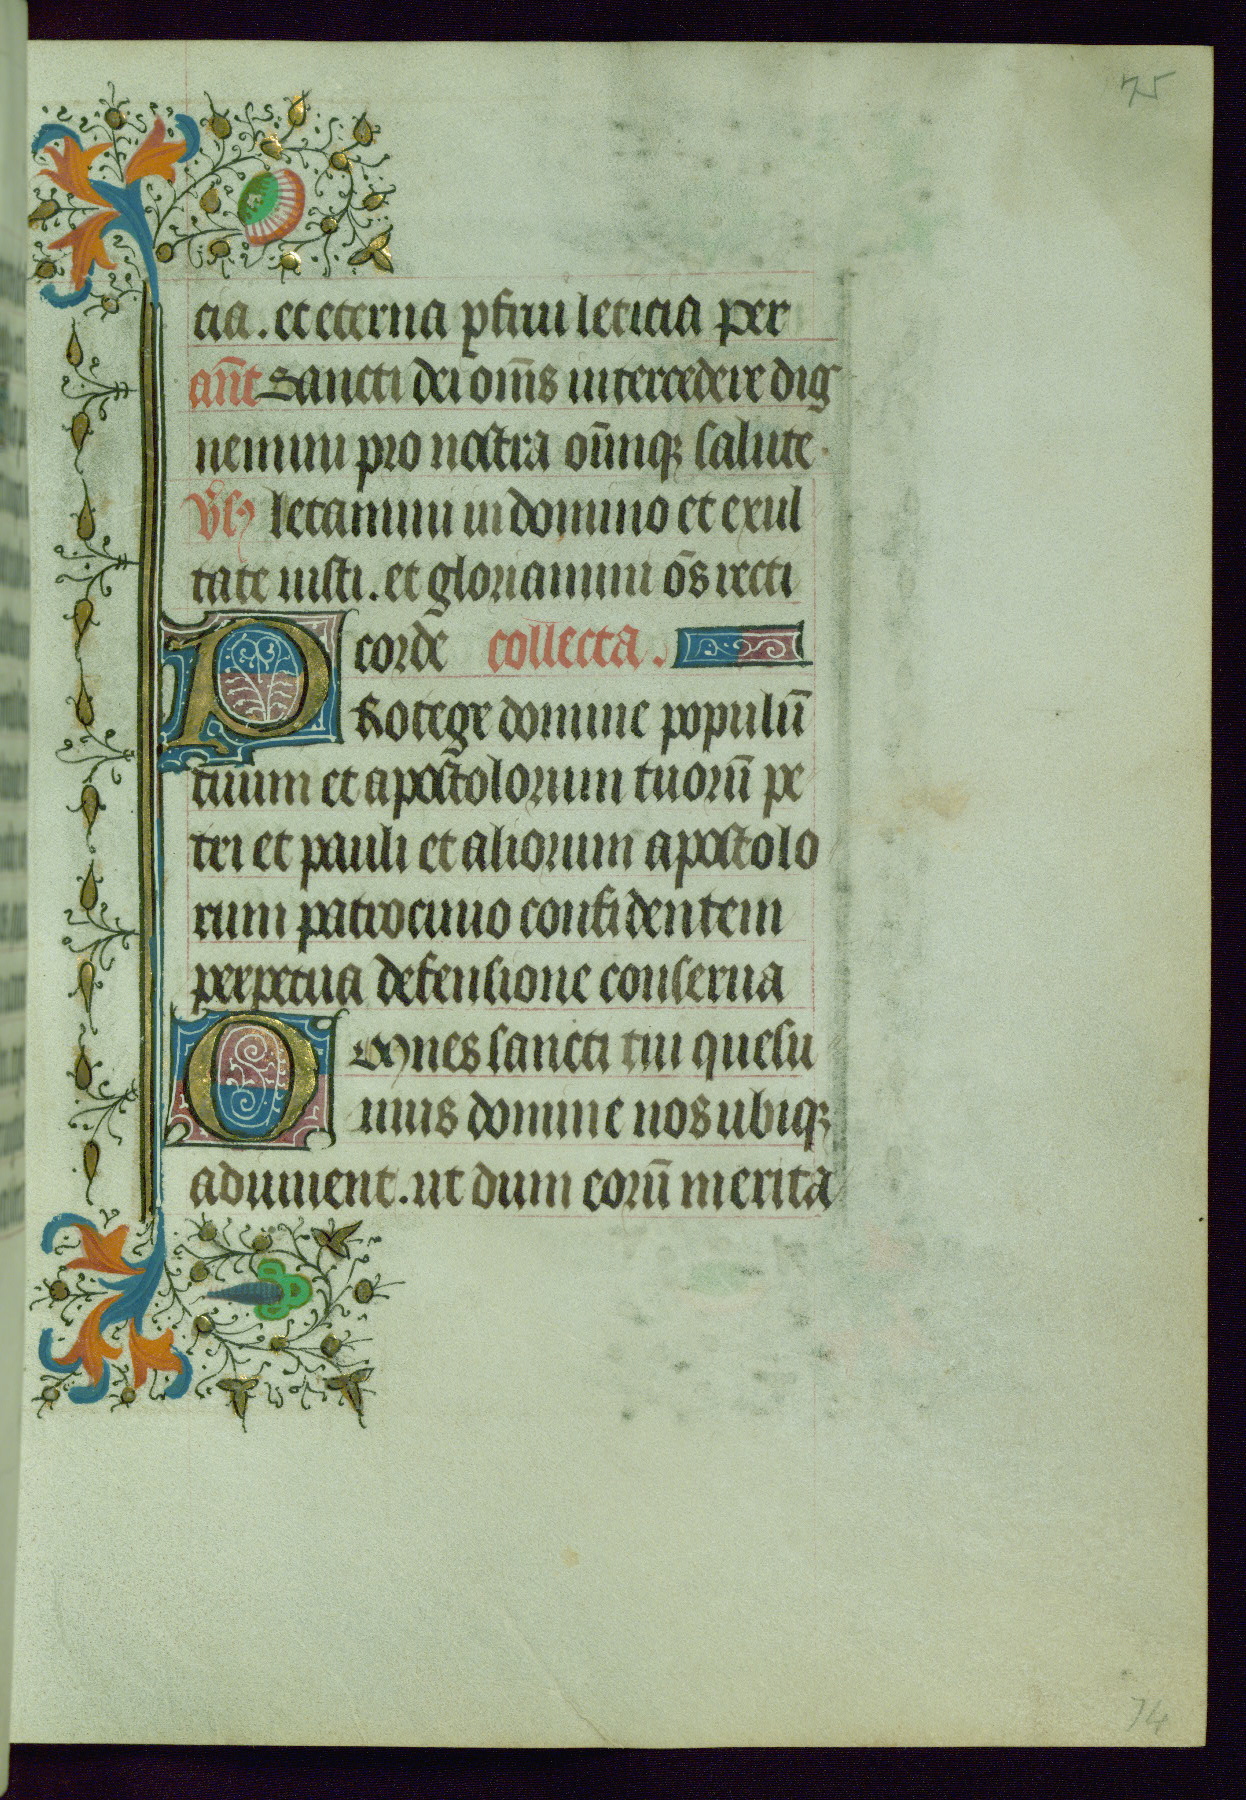 75
cia. et eterna pfrui leticia per
añt Sancti dei om̄s intercedere dig
nemini pro nostra om̄iq; salute.
Vs̃ letamini in domino et exul
tate iusti. et gloriamini ōs recti
corde collecta.
PRotege domine populū
tuum et apostolorum tuorū pe
tri et pauli et aliorum apostolo
rum patrocinio confidentem
perpetua defensione conserua
OMnes sancti tui quesu
mus domine nos ubiq;
adiuuent. ut dum eorū merita
74